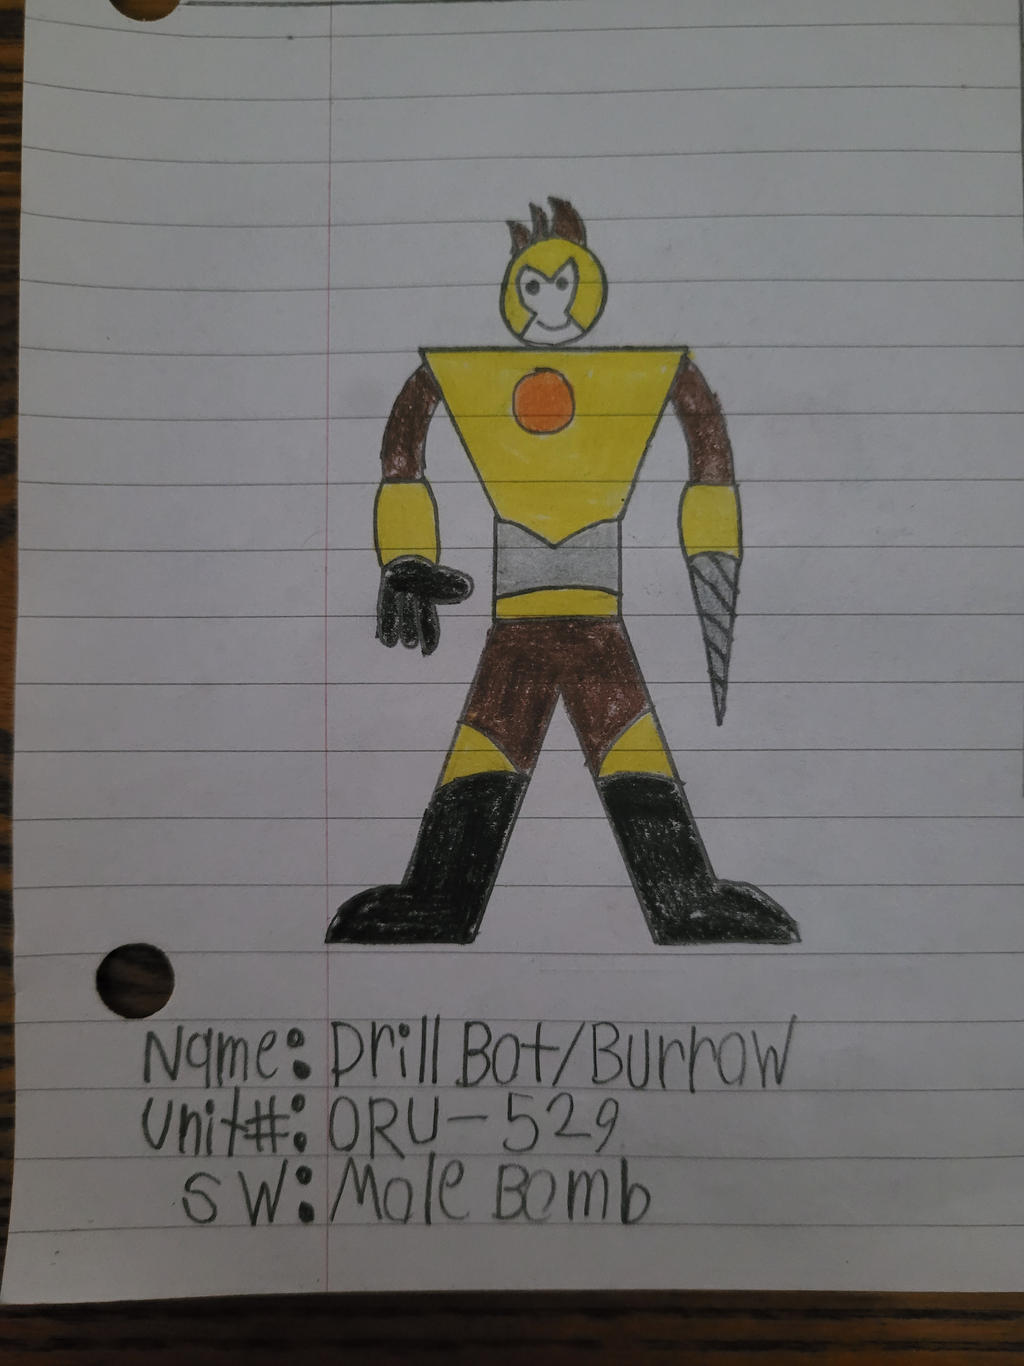 Name: Drill Bot/Burrow
Unit#: ORU-529
SW: Mole Bomb